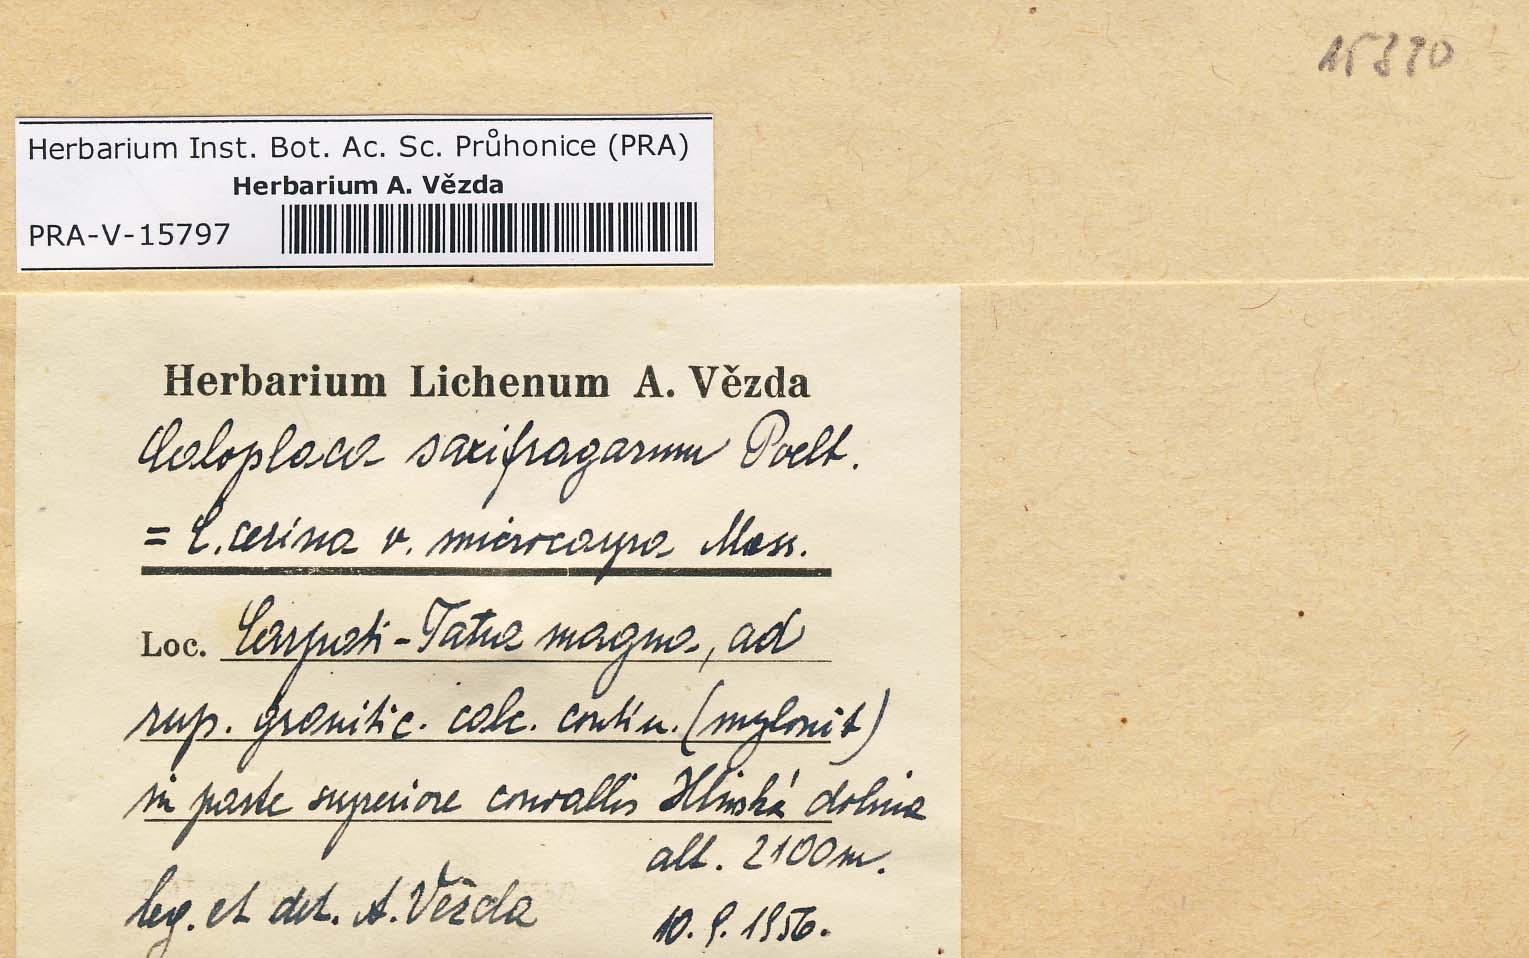 15390
Herbarium Inst. Bot. Ac. Sc. Průhonice (PRA)
Herbarium A. Vězda
PRA-V-15797
Herbarium Lichenum A. Vězda
Caloplaca saxifragarum Poelt.
= C. cerina v. microcarpa Mass.
Loc. Carpati - Tatra magna, ad
rup. granitic. calc. contin. (mylonit)
in parte superiore convallis Hlinská dolina
alt. 2100 m.
leg. et det. A. Vězda
10. 9. 1956.